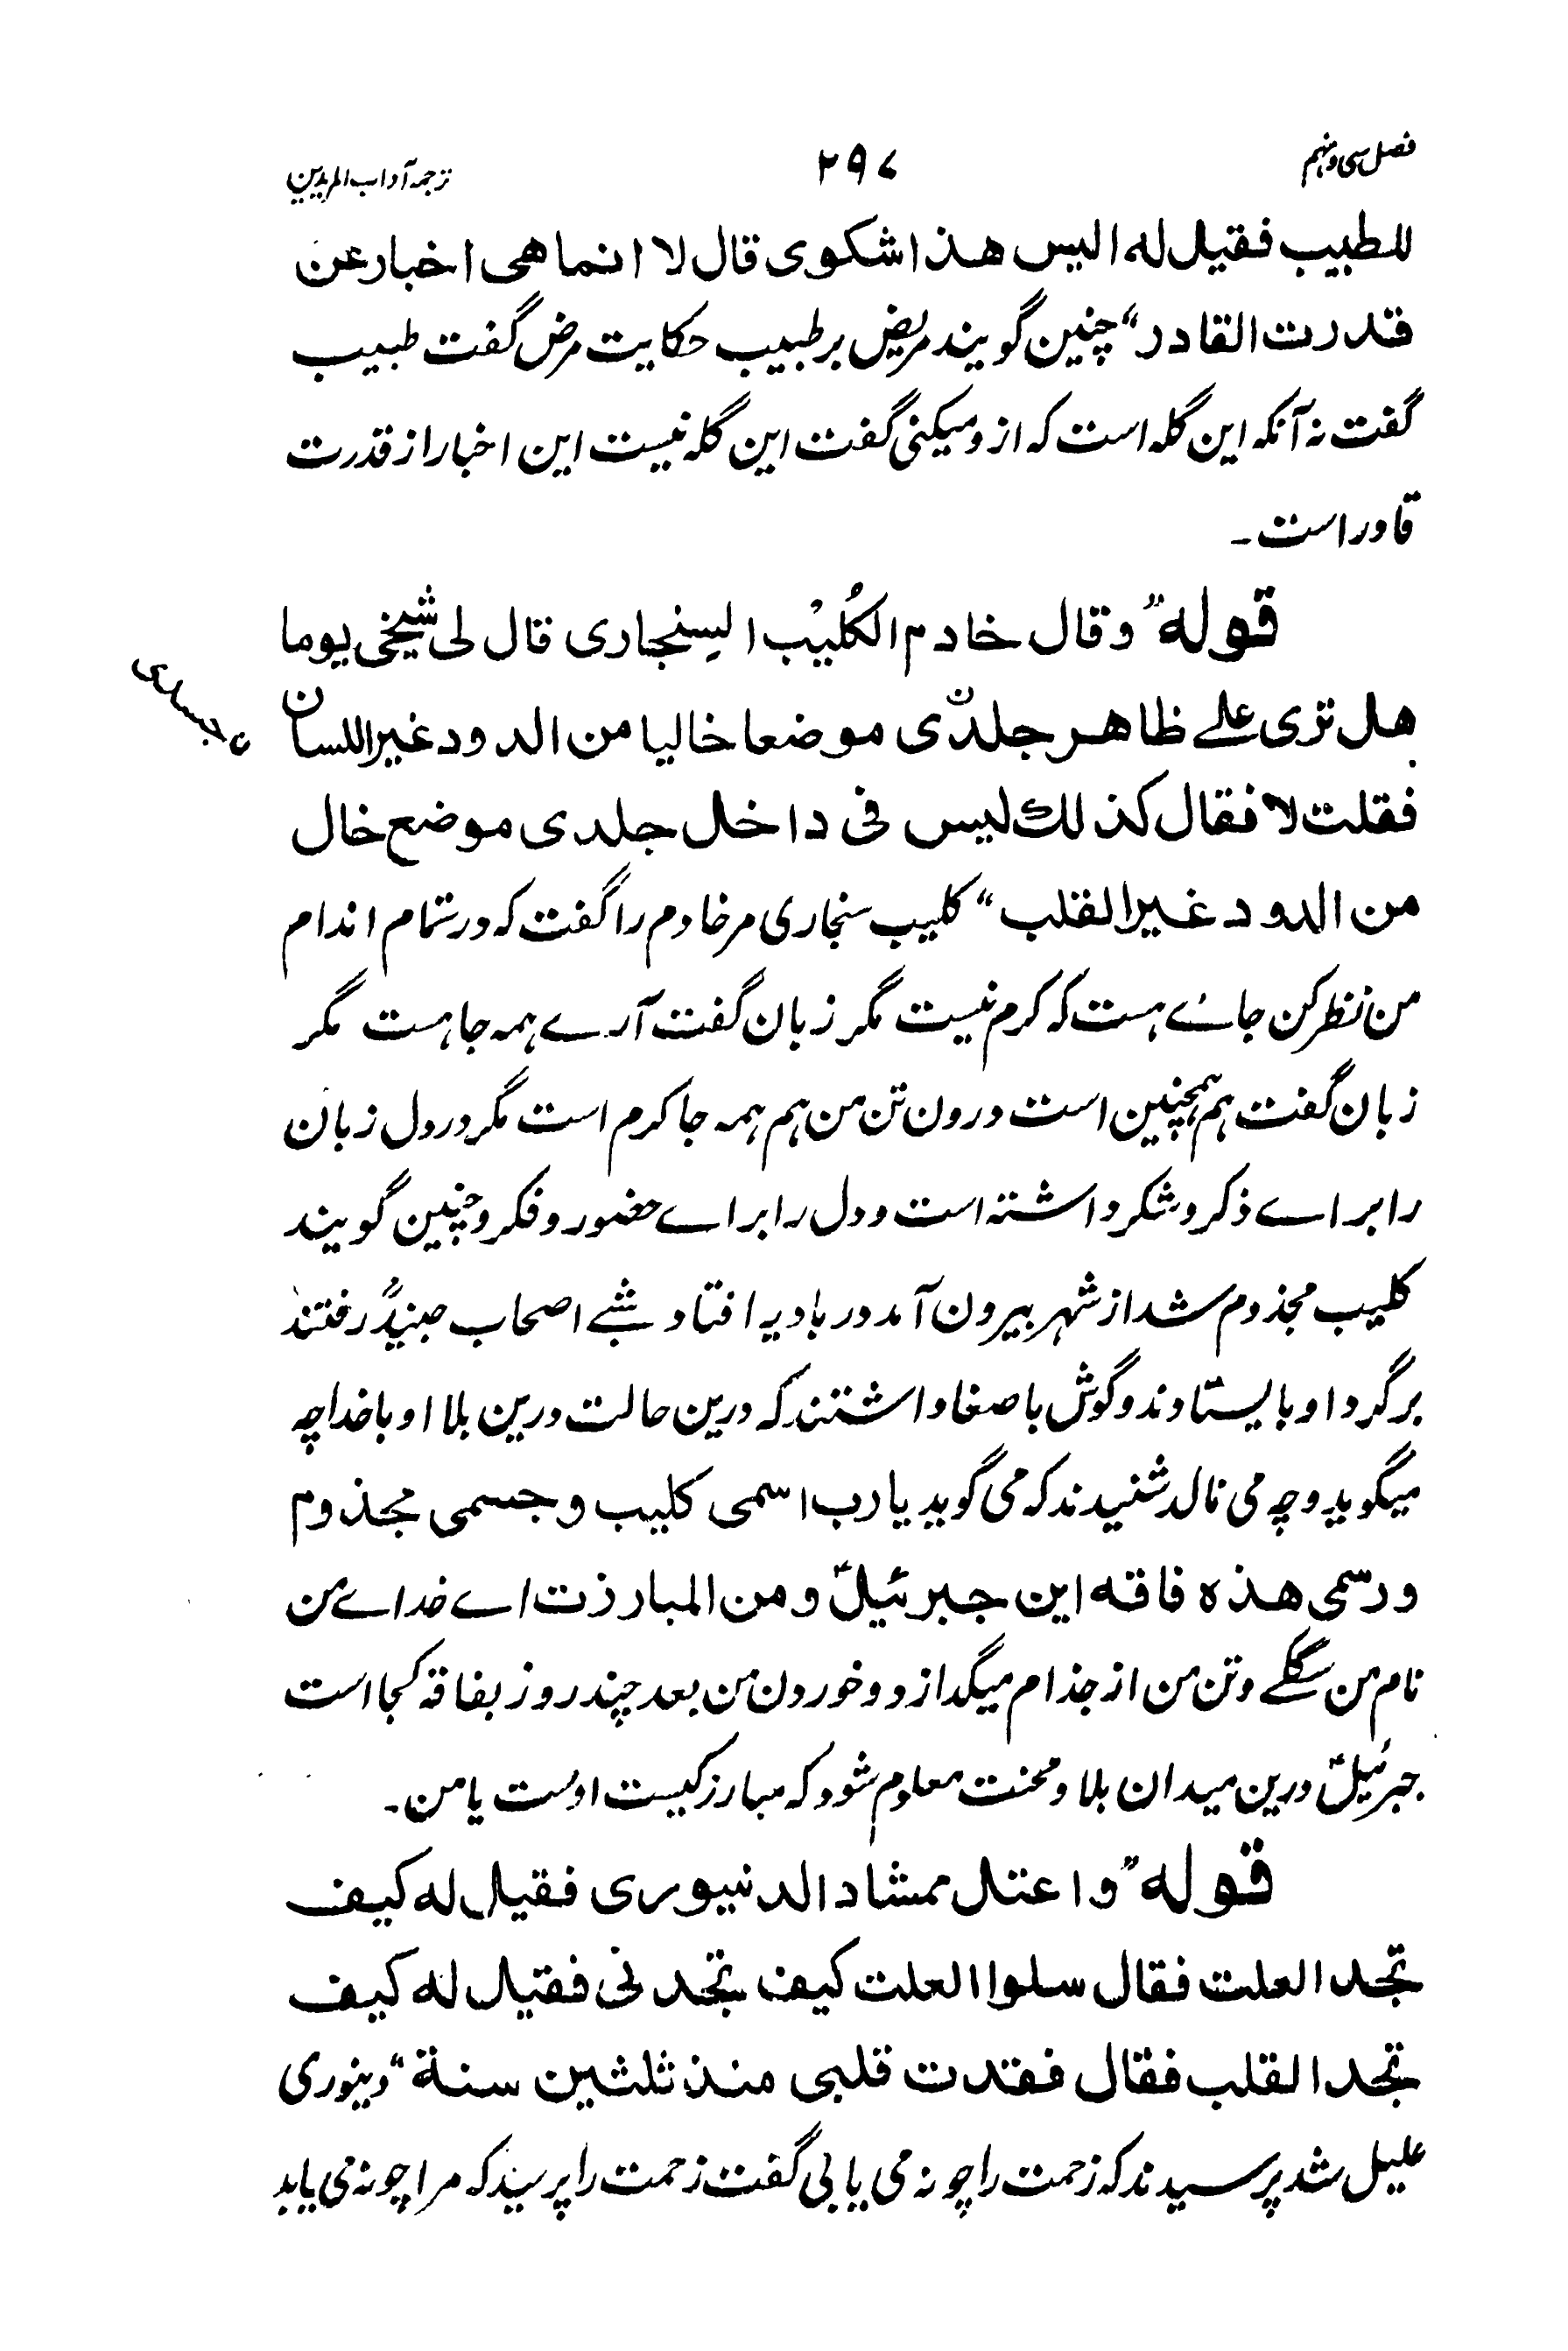 فصل سی و نهم ۲۹۷ ترجمہ آداب المریدین
للطبیب فقیل له الیس هذا شکوی قال لا انما هی اخبار عن
قدرت القادر“ چنین گویند مریض بر طبیب حکایت مرض گفت طبیب
گفت نہ آنکہ این گلہ است کہ ازو میکنی گفت این گلہ نیست این اخبار از قدرت
قادر است ۔
قوله” وقال خادم الکُلَیْب السِنجاری قال لی شیخی یوما
هل تری علے ظاهر جلدی موضعا خالیا من الدود غیر اللسان
ن جسدی
فقلت لا فقال کذلك لیس فی داخل جلدی موضع خال
من الدود غیر القلب“ کلیب سنجاری مر خادم را گفت کہ در تمام اندام
من نظر کن جائے ہست کہ کرم نیست مگر زبان گفت آرے ہمہ جا ہست مگر
زبان گفت ہم ہمچنین است درون تن من ہم ہمہ جا کرم است مگر در دل زبان
را براے ذکر و شکر داشتہ است و دل را براے حضور و فکر و چنین گویند
کلیب مجذوم شد از شہر بیرون آمد در بادیہ افتاد شبے اصحاب جنیدؒ رفتند
بر گرد او بایستادند و گوش باصغا داشتند کہ درین حالت درین بلا او با خدا چہ
میگوید و چہ می نالد شنیدند کہ می گوید یا رب اسمی کلیب و جسمی مجذوم
و رسمی هذه فاقه این جبرئیلؑ و من المبارزت اے خداے من
نام من سگکے و تن من از جذام میگدازد و خوردن من بعد چند روز بفاقہ کجا است
جبرئیلؑ درین میدان بلا و محنت معلوم شود کہ مبارز کیست اوست یا من ۔
قوله” واعتل ممشاد الدنیوری فقیل له کیف
تجد العلت فقال سلوا العلت کیف تجدنی فقیل له کیف
تجد القلب فقال فقدت قلبی منذ ثلثین سنة“ دینوری
علیل شد پرسیدند کہ زحمت را چونہ می یابی گفت زحمت را پرسید کہ مرا چونہ می یابد